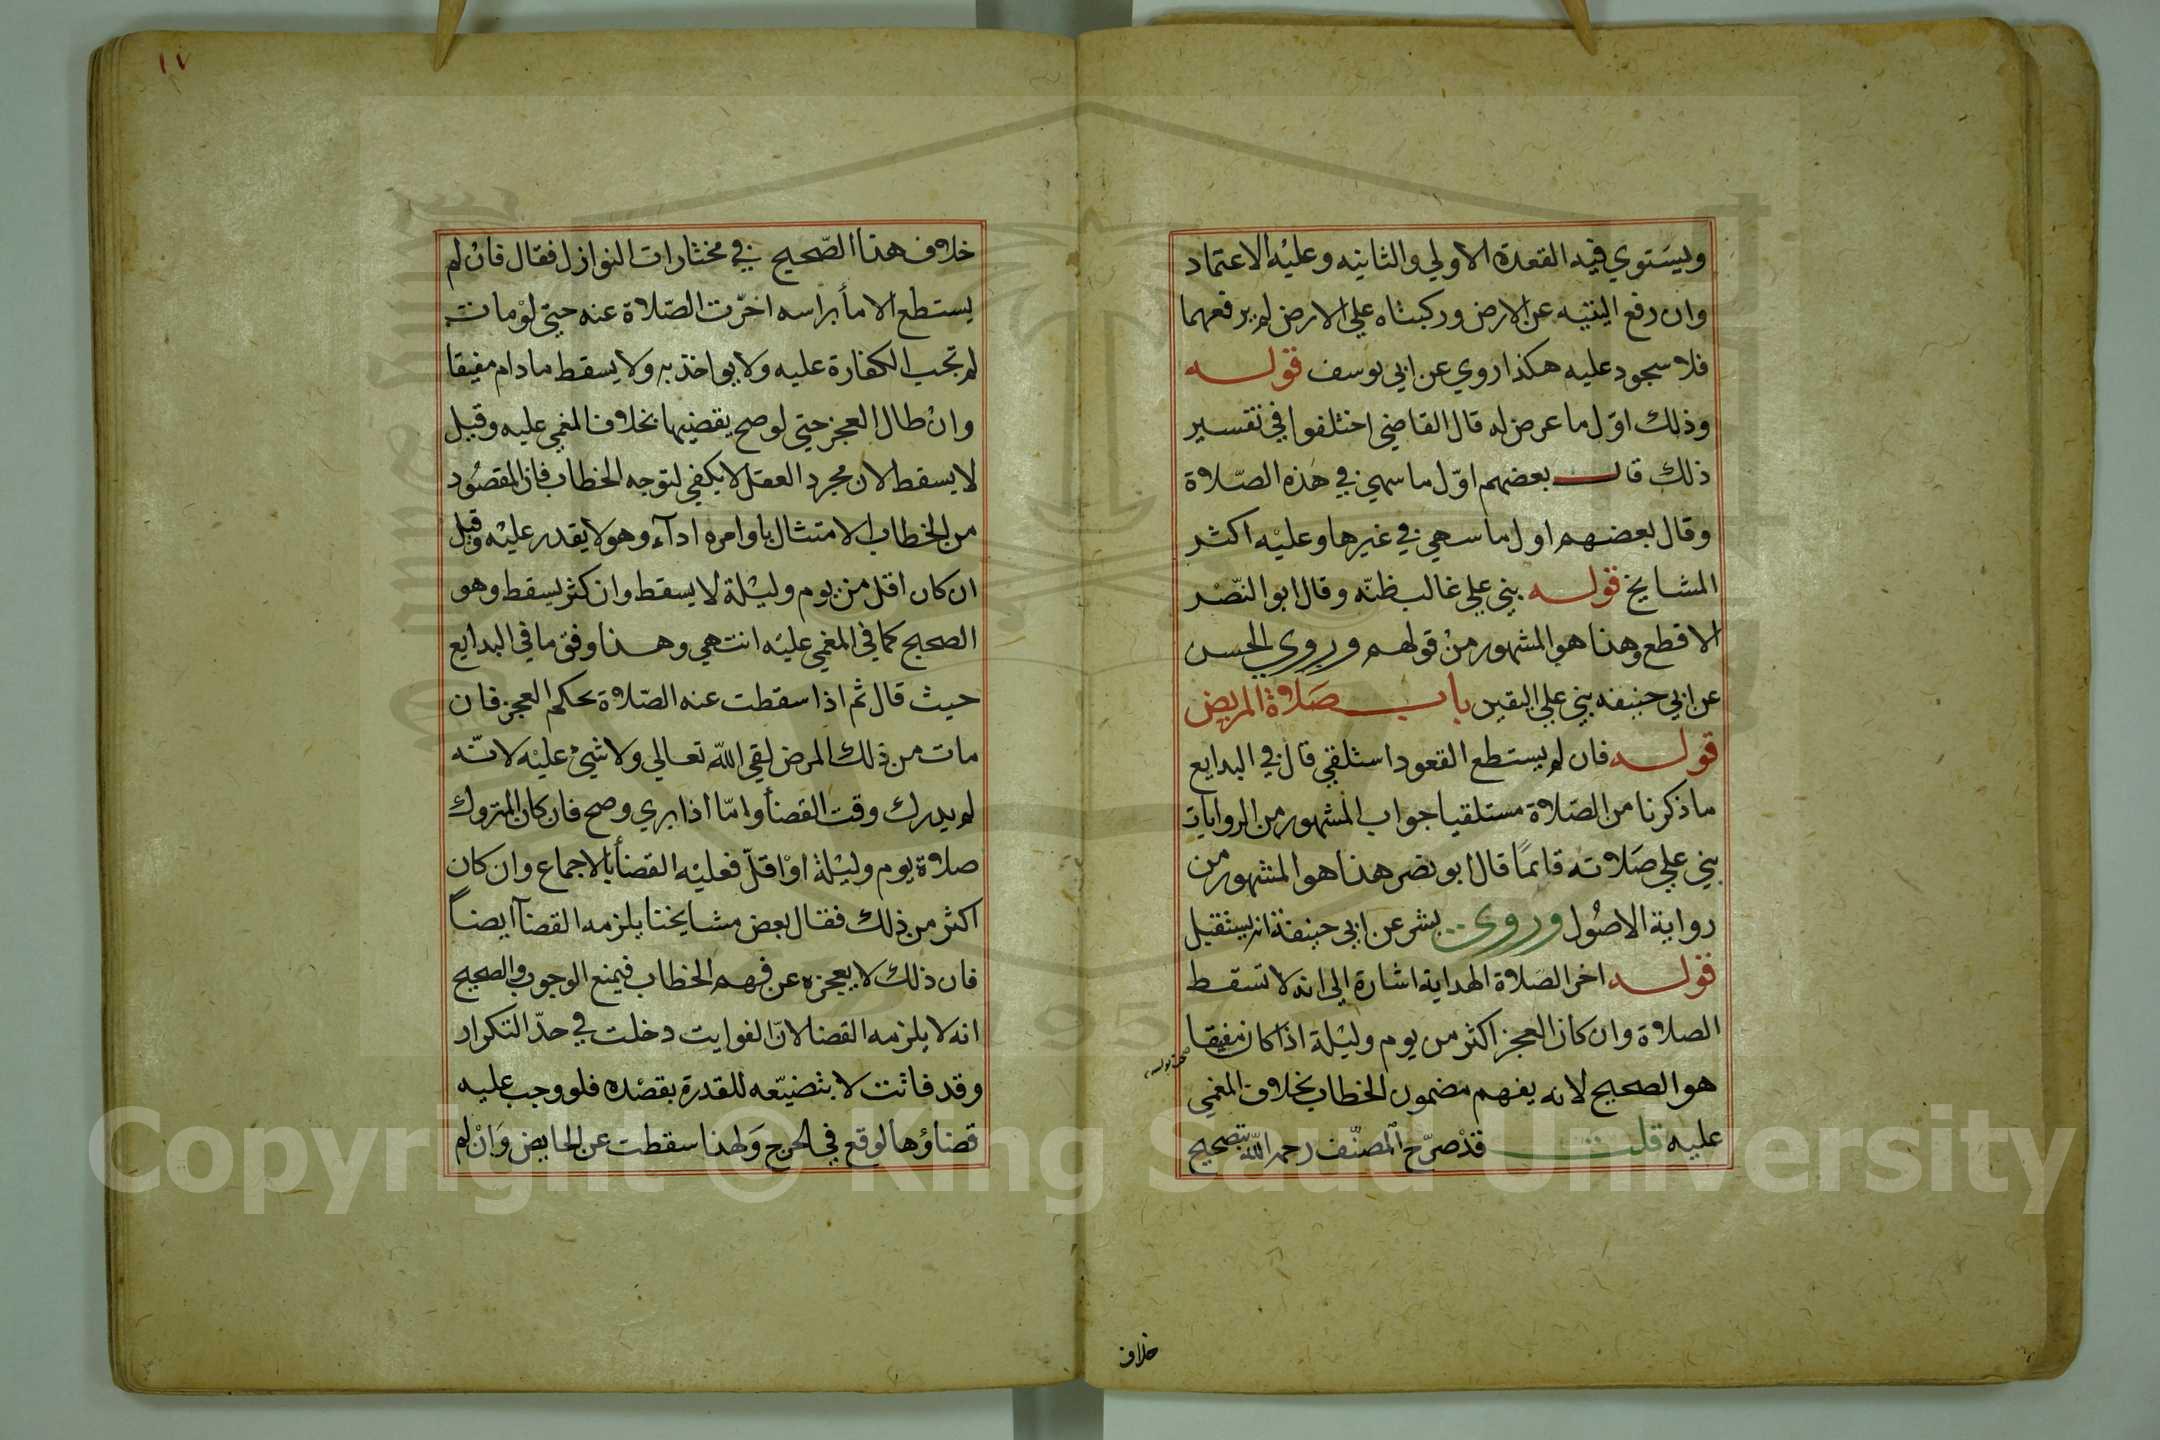 ويستوي فيه القعدة الاولي والثانيه وعليه الاعتماد
وان رفع اليتيه عن الارض وركبتاه علي الارض لم يرفعهما
فلا سجود عليه هكذا روي عن ابي يوسف قوله
وذلك اوّل ما عرض له قال القاضي اختلفوا في تفسير
ذلك قال بعضهم اوّل ما سهي في هذه الصّلاة
وقال بعضهم اول ما سهي في غيرها وعليه اكثر
المشايخ قوله بني علي غالب ظنّه وقال ابو النّصر
الاقطع وهذا هو المشهور من قولهم وروي الحسن
عن ابي حنيفه يبني علي اليقين باب صَلاة المريض
قوله فان لم يستطع القعود استلقي قال في البدايع
ما ذكرنا من الصّلاة مستلقيا جواب المشهور من الروايات
بني علي صَلاته قائمًا قال ابو نصر هذا هو المشهور من
رواية الاصُول وروي بشر عن ابي حنيفة انه يستقبل
قوله اخر الصَلاة الهداية اشارة الي انه لا تسقط
الصلاة وان كان العجز اكثر من يوم وليْلة اذا كان مفيقا
هو الصحيح لانه يفهم مضمون الخطاب بخلاف المغمي
عليه قلت قدْ صرّح المصنّف رحمه اللّه بتصحيح
خلاف
١٧
خلاف هذا الصّحيح في مختارات النوازل فقال فانْ لم
يستطع الامأ براسه اخرّت الصّلاة عنه حتي لوْ مات
لم تجب الكفارة عليه ولا يواخذ به ولا يسقط ما دام مفيقا
وانْ طال العجز حتي لو صح يقضيها بخلاف المغمي عليه وقيل
لا يسقط لان مجرد العقل لا يكفي لتوجه الخطاب فان المقصُود
من الخطاب الامتثال باوامره اداء وهو لا يقدر عليْه وقيل
ان كان اقل من يوم وليْلة لا يسقط وان كثر يسقط وهو
الصحيح كما في المغمي عليْه انتهي وهذا وفق ما في البدايع
حيث قال ثم اذا سقطت عنه الصّلاة بحكم العجز فان
مات من ذلك المرض لقي اللّه تعالي ولا شيئ عليْه لانّه
لم يدرك وقت القضأ وامّا اذا بري وصح فان كان المتروك
صلاة يوم وليْلة اوْ اقلّ فعليْه القضأ بالاجماع وان كان
اكثر من ذلك فقال بعض مشايخنا يلزمه القضآ ايضاً
فان ذلك لا يعجزه عن فهم الخطاب فيمنع الوجوب والصحيح
انه لا يلزمه القضا لانّ الفوايت دخلت في حدّ التكرار
وقد فاتت لا بتضيّعه للقدرة بقصْده فلو وجب عليه
قضاؤها لوقع في الحرج وَلهذا سقطت عن الحايض وَانْ لم
Copyright © King Saud University